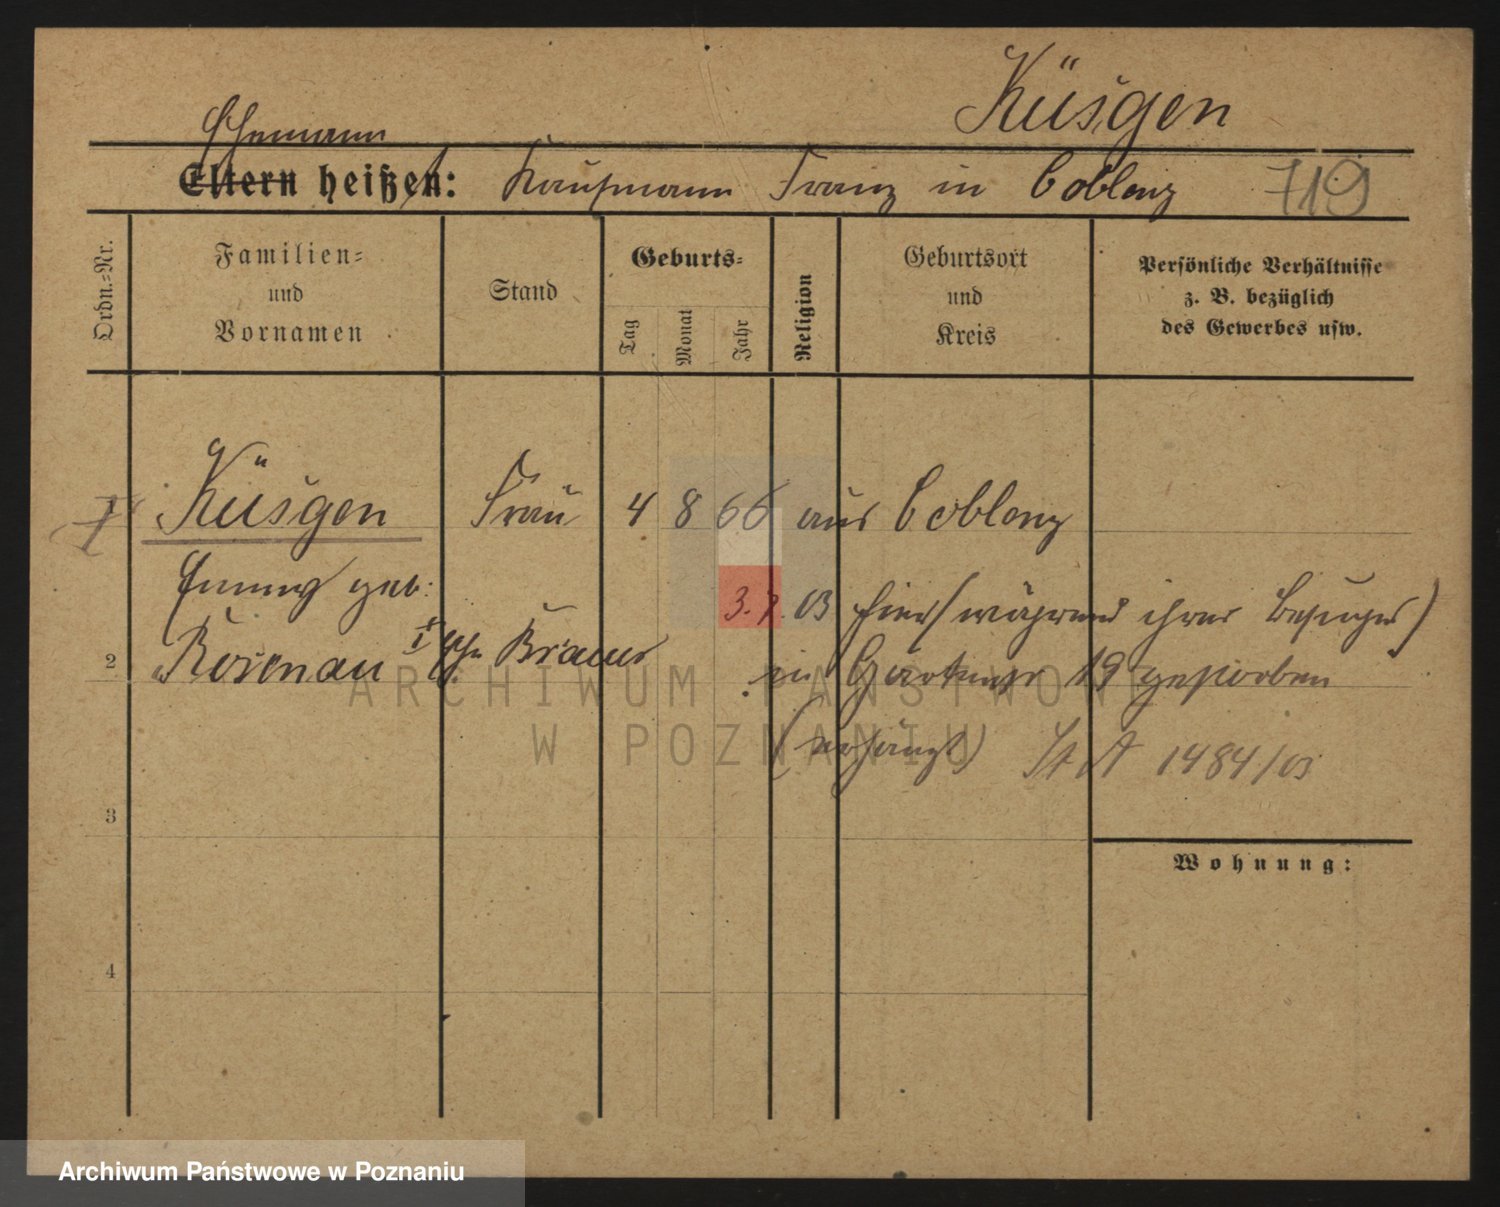 Küsgen
Ehemann
Eltern heißen: Kaufmann Franz in Coblenz 719
Ordn.-Nr.
Familien-
und
Vornamen
Stand
Geburts-
Tag
Monat
Jahr
Religion
Geburtsort
und
Kreis
Persönliche Verhältnisse
z. B. bezüglich
des Gewerbes usw.
Küsgen Frau 4 8 66 aus Coblenz
geb.
3.7.03 hier (während ihres Besuches)
2 Rosenau I Ehe Brauer in Gartenstr 19 gestorben
(erhängt) St A 1484/03
3
Wohnung:
4
ARCHIWUM PAŃSTWOWE
W POZNANIU
Archiwum Państwowe w Poznaniu